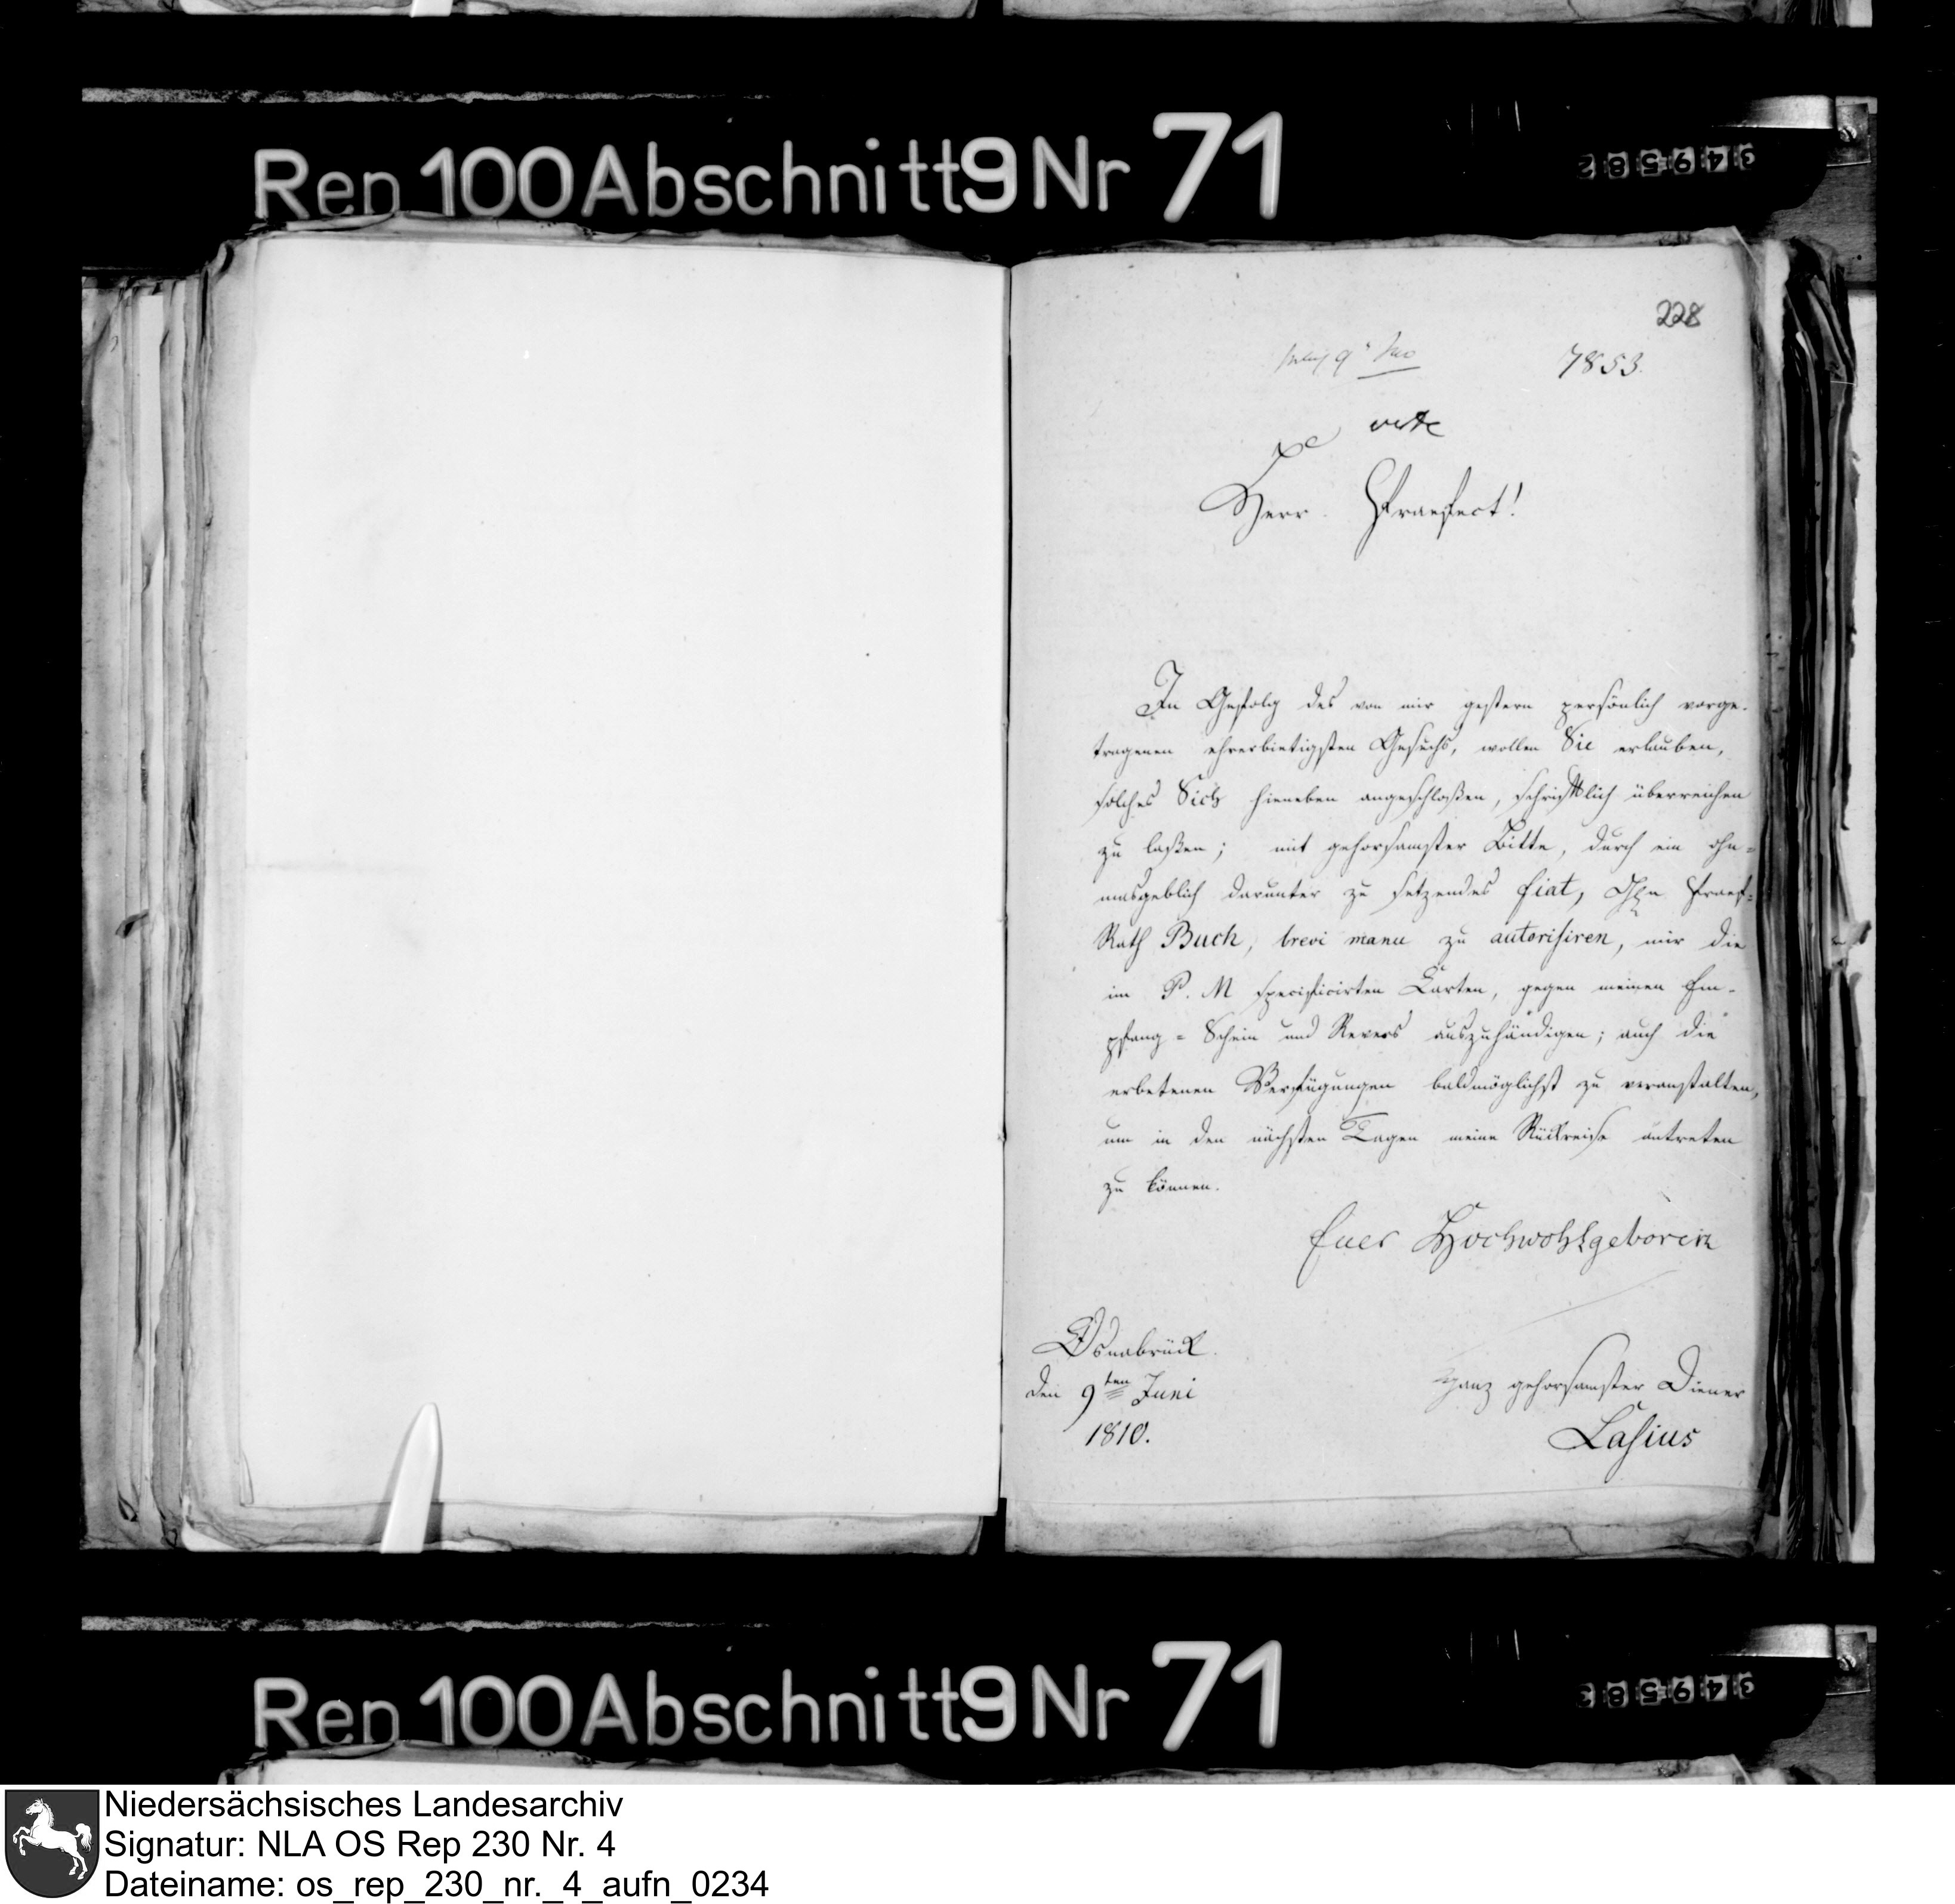 Rep 100 Abschnitt 9 Nr 71
349582
228
7853.
Herr Praefect!
In Gefolg des von mir gestern persönlich vorge-
tragenen ehrerbietigsten Gesuchs, wollen Sie erlauben,
solches Sich hieneben angeschloßen, schriftlich überreichen
zu laßen; mit gehorsamster Bitte, durch ein ohn-
masgeblich darunter zu setzendes fiat, Hn Praef-
Rath Buch, brevi manu zu autorisiren, mir die
im P. M specificirten Carten, gegen meinen Em-
pfang-Schein und Revers auszuhändigen; auch die
erbetenen Verfügungen baldmöglichst zu veranstalten,
um in den nächsten Tagen meine Rückreise antreten
zu können.
Euer Hochwohlgeboren
Osnabrück
den 9ten Juni
1810.
ganz gehorsamster Diener
Lasius
Rep 100 Abschnitt 9 Nr 71
349583
Niedersächsisches Landesarchiv
Signatur: NLA OS Rep 230 Nr. 4
Dateiname: os_rep_230_nr._4_aufn_0234